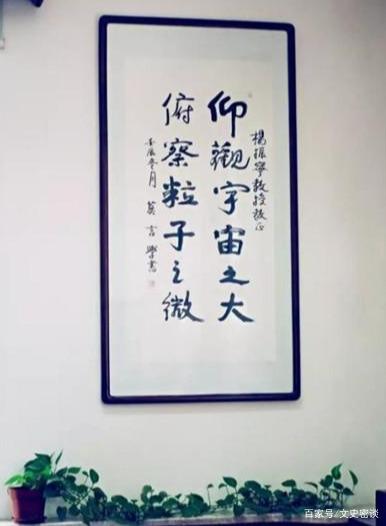 楊振寧教授教正
仰觀宇宙之大
俯察粒子之微
壬辰冬月 莫言學書
百家号/文史密谈